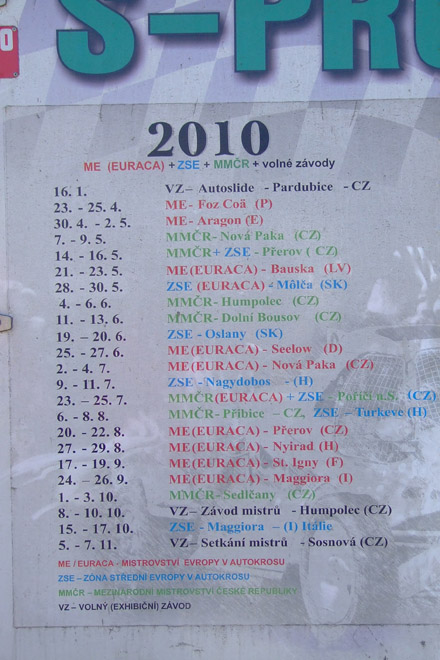 S-PRO
0
2010
ME (EURACA) + ZSE + MMČR + volné závody
16. 1. VZ– Autoslide - Pardubice - CZ
23. - 25. 4. ME- Foz Coã (P)
30. 4. - 2. 5. ME- Aragon (E)
7. - 9. 5. MMČR- Nová Paka (CZ)
14. - 16. 5. MMČR+ ZSE - Přerov ( CZ)
21. - 23. 5. ME(EURACA) - Bauska (LV)
28. - 30. 5. ZSE (EURACA) - Môlča (SK)
4. - 6. 6. MMČR- Humpolec (CZ)
11. - 13. 6. MMČR- Dolní Bousov (CZ)
19. – 20. 6. ZSE - Oslany (SK)
25. - 27. 6. ME(EURACA) - Seelow (D)
2. - 4. 7. ME(EURACA) - Nová Paka (CZ)
9. - 11. 7. ZSE - Nagydobos - (H)
23. – 25. 7. MMČR(EURACA) + ZSE - Poříčí n.S. (CZ)
6. - 8. 8. MMČR- Přibice – CZ, ZSE – Turkeve (H)
20. - 22. 8. ME(EURACA) - Přerov (CZ)
27. - 29. 8. ME(EURACA) - Nyirad (H)
17. - 19. 9. ME(EURACA) - St. Igny (F)
24. – 26. 9. ME(EURACA) - Maggiora (I)
1. - 3. 10. MMČR- Sedlčany (CZ)
8. - 10. 10. VZ– Závod mistrů - Humpolec (CZ)
15. - 17. 10. ZSE - Maggiora – (I) Itálie
5. - 7. 11. VZ– Setkání mistrů - Sosnová (CZ)
ME / EURACA - MISTROVSTVÍ EVROPY V AUTOKROSU
ZSE – ZÓNA STŘEDNÍ EVROPY V AUTOKROSU
MMČR - MEZINÁRODNÍ MISTROVSTVÍ ČESKÉ REPUBLIKY
VZ – VOLNÝ (EXHIBIČNÍ) ZÁVOD